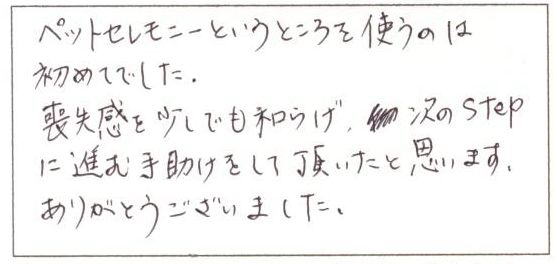 ペットセレモニーというところを使うのは
初めてでした.
喪失感を少しでも和らげ, 次のstep
に進む手助けをして頂いたと思います.
ありがとうございました.